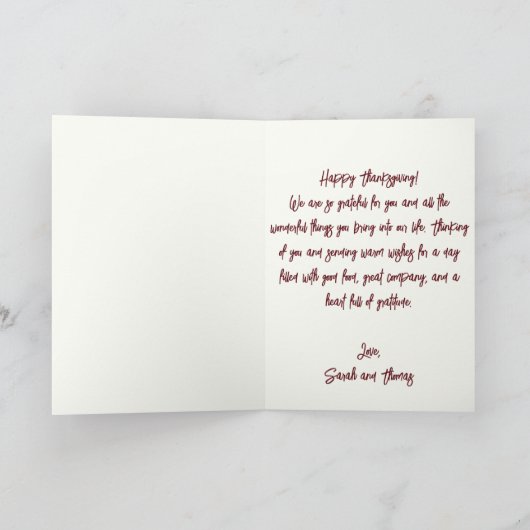 Happy Thanksgiving!
We are so grateful for you and all the
wonderful things you bring into our life. Thinking
of you and sending warm wishes for a day
filled with good food, great company, and a
heart full of gratitude.
Love,
Sarah and Thomas